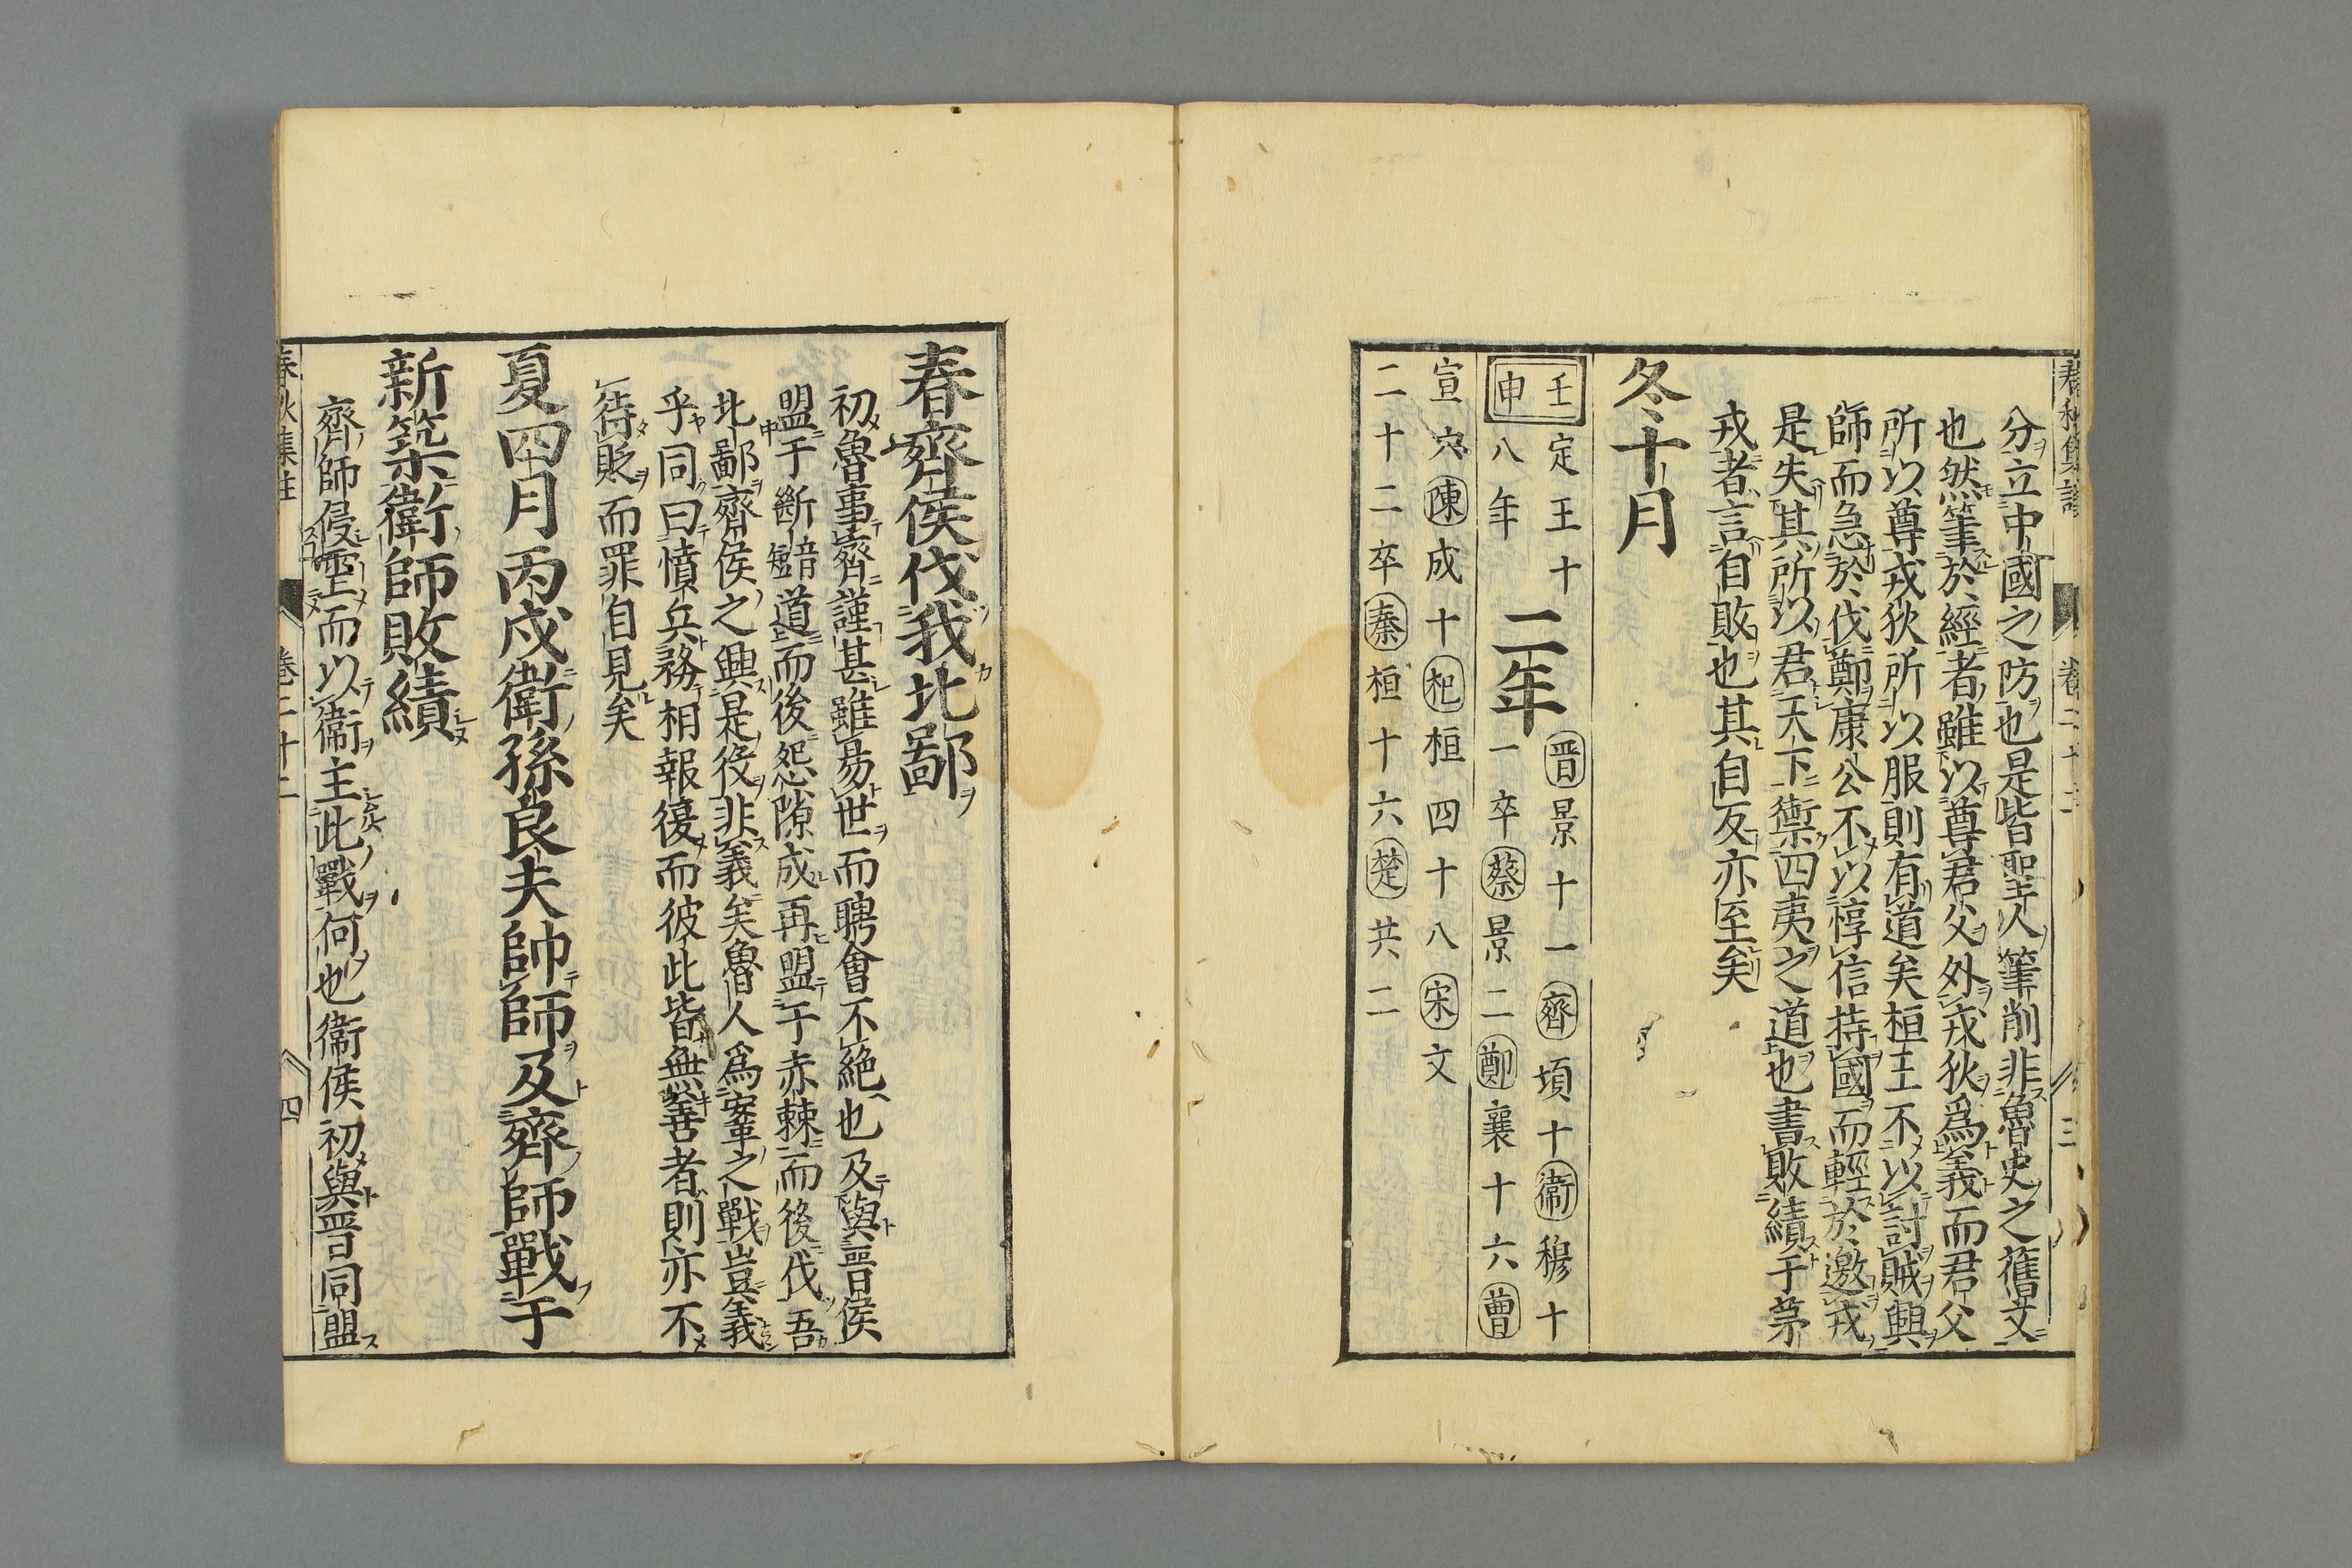 春秋集註 卷二十二 三
分立中國之防也是皆聖人筆削非魯史之舊文
也然筆於經者雖以尊君父外戎狄爲義而君父
所以尊戎狄所以服則有道矣桓王不以討賊興
師而急於伐鄭康公不以惇信持國而輕於邀戎
是失其所以君天下禦四夷之道也書敗績于茅
戎者言自敗也其自反亦至矣
冬十月
壬申 定王十八年 二年 晋景十一齊頃十衞穆十
一卒蔡景二鄭襄十六曹
宣六陳成十杞桓四十八宋文
二十二卒秦桓十六楚共二
春齊侯伐我北鄙
初魯事齊謹甚雖易世而聘會不絶也及與晋侯
盟于斷音短道而後怨隙成再盟于赤棘而後伐吾
北鄙齊侯之興是役非義矣魯人爲鞌之戰豈義
乎同曰憤兵務相報復而彼此皆無善者則亦不
待貶而罪自見矣
夏四月丙戌衞孫良夫帥師及齊師戰于
新築衞師敗績
齊師侵虐而以衞主此戰何也衞侯初與晋同盟
春秋集註 卷二十二 四